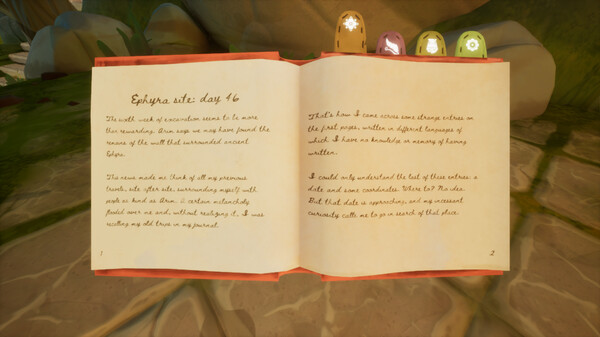 Ephyra site: day 46
The sixth week of excavation seems to be more
than rewarding. Arin says we may have found the
remains of the wall that surrounded ancient
Ephyra.
The news made me think of all my previous
travels, site after site, surrounding myself with
people as kind as Arin. A certain melancholy
flooded over me and, without realizing it, I was
recalling my old trips in my journal.
1
That's how I came across some strange entries on
the first pages, written in different languages of
which I have no knowledge or memory of having
written.
I could only understand the last of these entries: a
date and some coordinates. Where to? No idea.
But that date is approaching, and my incessant
curiosity calls me to go in search of that place.
2